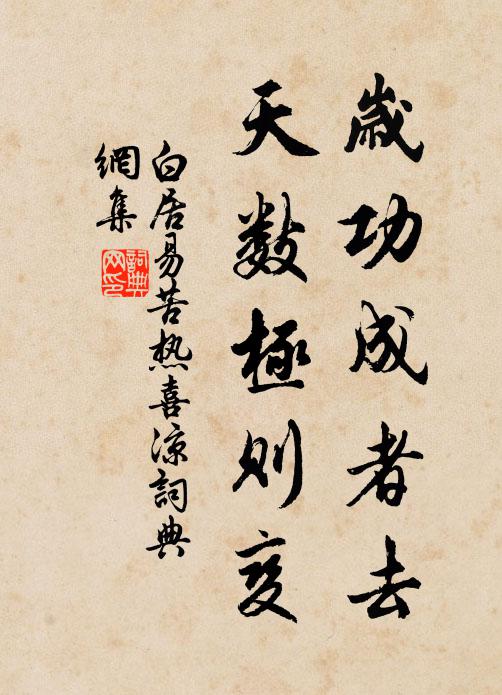 歲功成者去
天數極則变
白居易苦热喜凉詞典
網集
詞典
网印